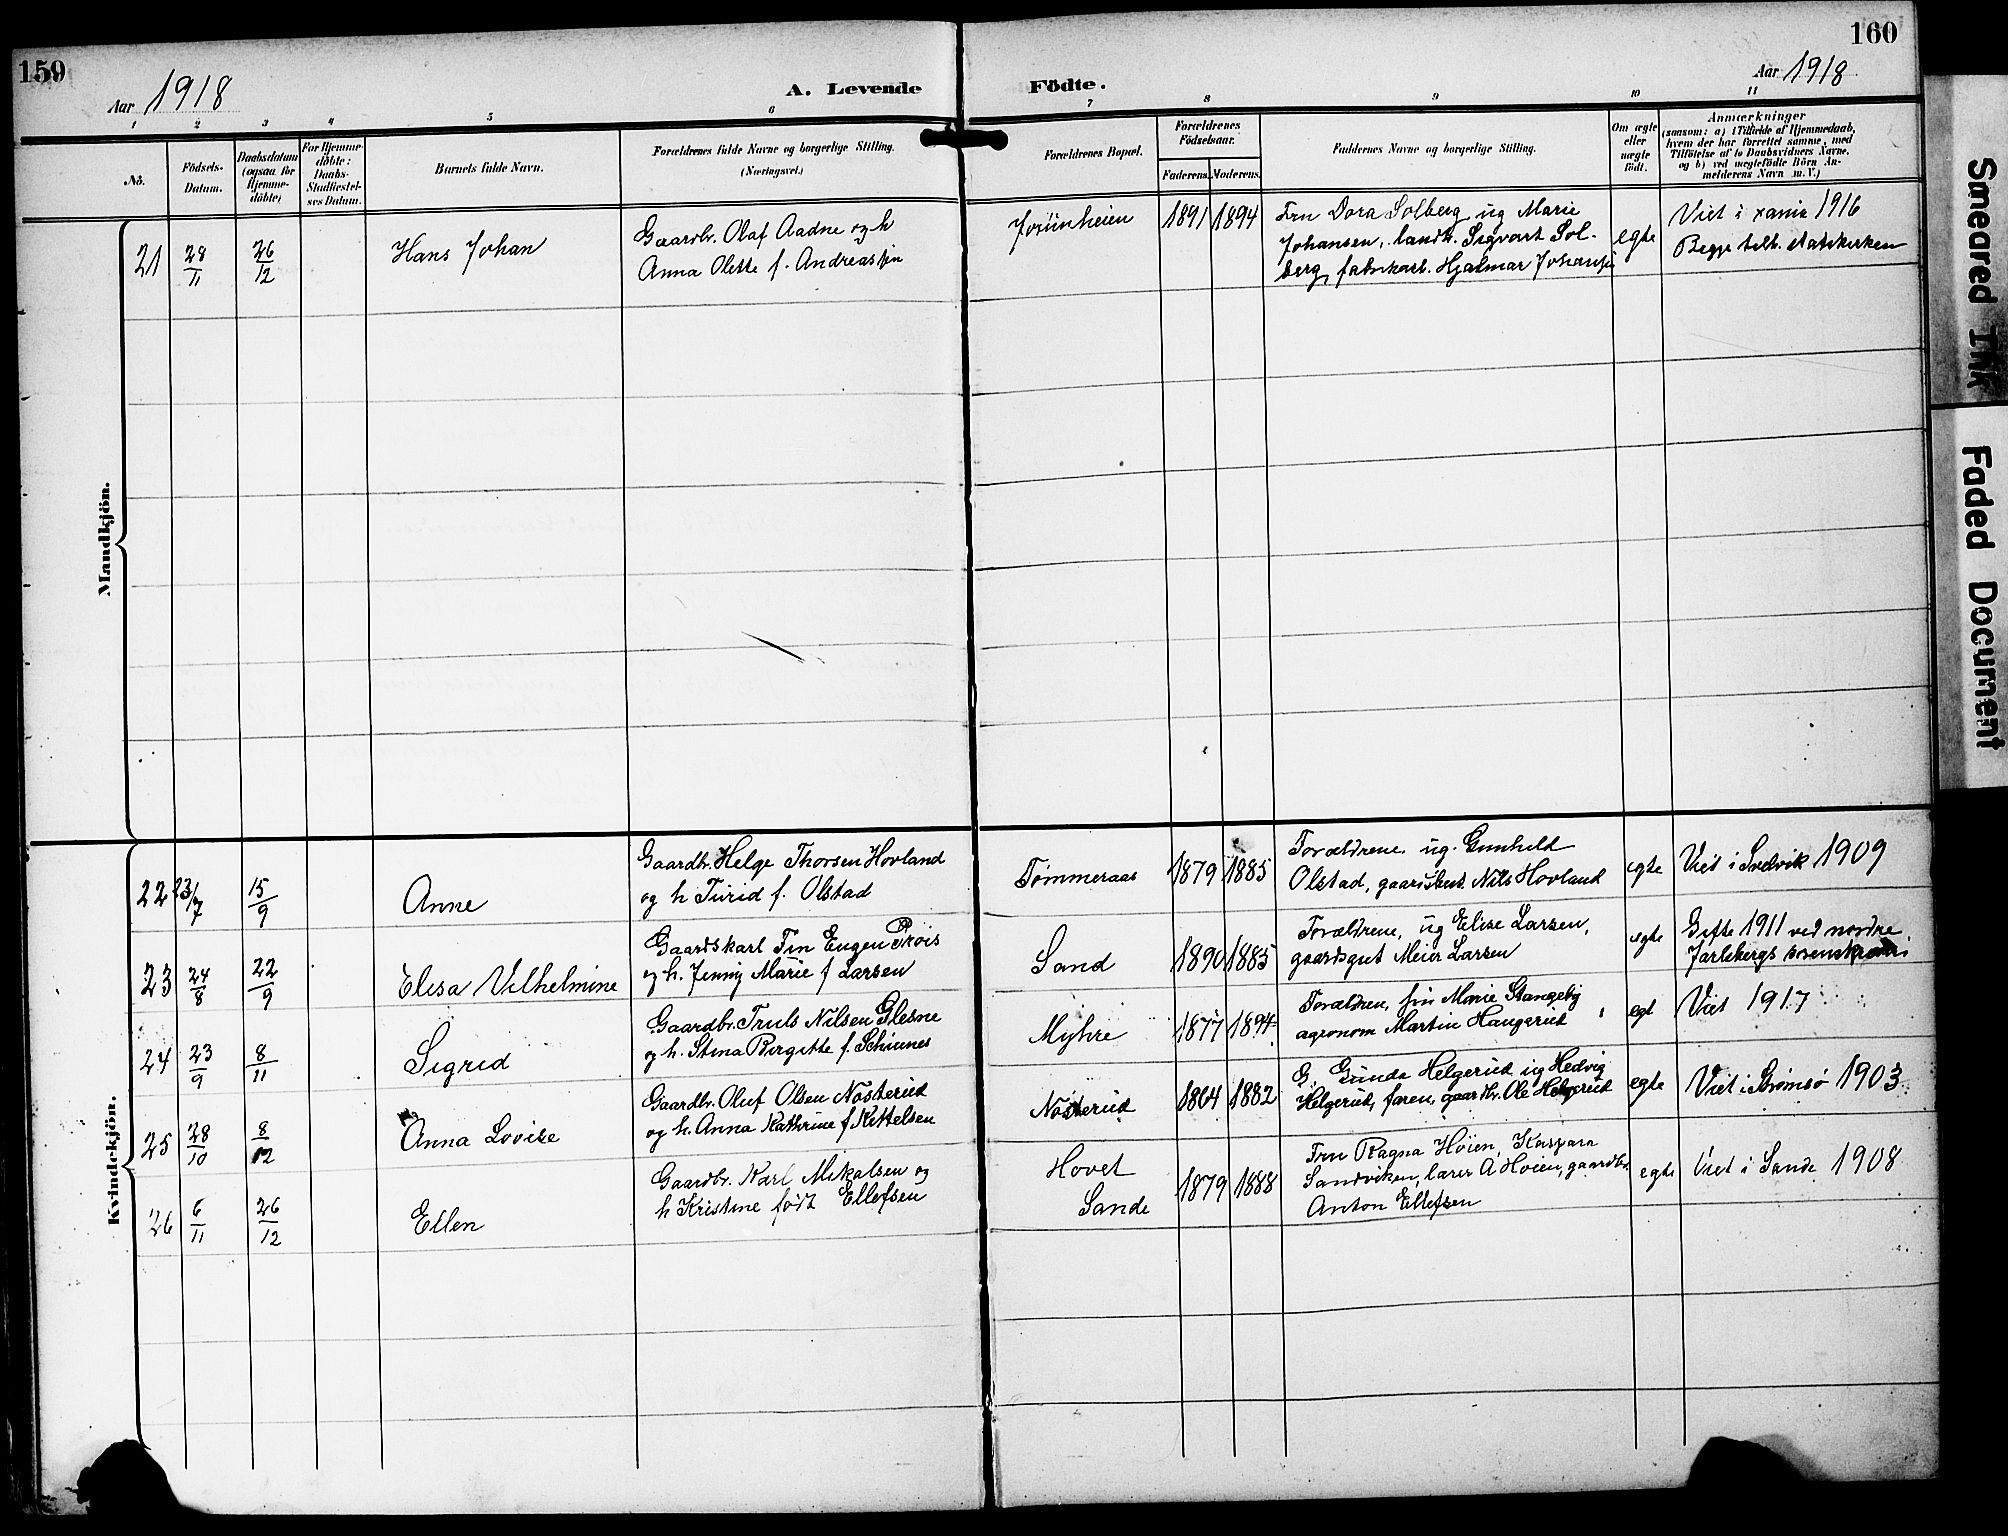 159
160
Aar 1918
A. Levende Födte.
Aar 1918
1 2 3 4 5 6 7 8 9 10 11
No.
Födsels-
Datum.
Daabsdatum
(ogsaa for
Hjemme-
döbte)
For Hjemme-
döbte:
Daabs-
Stadfæstel-
ses Datum.
Barnets fulde Navn.
Forældrenes fulde Navne og borgerlige Stilling.
(Næringsvei.)
Forældrenes Bopæl.
Forældrenes
Födselsaar.
Faderens. Moderens.
Faddernes Navne og borgerlige Stilling.
Om ægte
eller
uægte
födt.
Anmærkninger
(saasom: a) i Tilfælde af Hjemmedaab,
hvem der har forrettet samme, med
Tilföielse af to Daabsvidners Navne.
og b) ved uægtefödte Börn An-
melderens Navn m. V.)
Mandkjön.
21 28/11 26/12 Hans Johan
Gaardbr. Olaf Aadne og h
Anna Olette f. Andreassen
1891 1894
Fru Dora Solberg ug Marie
Johansen, landh. Sigvart Sol-
berg, fabrikarb. Hjalmar Johansen
egte
Viet i xania 1916
Begge tilh. statskirken
Kvindekjön.
22 23/7 15/9 Anne
Gaardbr. Helge Thorsen Hovland
og h Turid f. Olstad
Tømmeraas
1879 1885
Forældrene ug. Gunhild
Olstad, Nils Hovland
egte
Viet i Svelvik 1909
23 24/8 22/9 Elisa Vilhelmine
Gaardskarl Fin Eugen Prøis
og h. Jenny Marie f Larsen
Sand
1890 1885
Forældrene, ug Elise Larsen,
gaardsgut Meier Larsen
egte
Gifte 1911 ved nordre
Jarlsbergs sorenskriveri
24 23/9 8/11 Sigrid
Gaardbr. Truls Nilsen Glesne
og h. Stina Birgitte f.
Myhre
1877 1894
Forældrene, fru Marie Stangeby
agronom Martin Haugerud
egt
Viet 1917
25 28/10 8/12 Anna Lovise
Gaardbr. Oluf Olsen Nøsterud
og h. Anna Kathrine f Kittelsen
Nøsterud
1864 1882
G. Gunda Helgerud ug Hedvig
Helgerud, faren, gaardbr. Ole Helgerud
egte
Viet i Strømsø 1903
26 6/11 26/12 Ellen
Gaardbr. Karl Mikalsen og
h Kristine født Ellefsen
Hovet
Sande
1879 1888
Fru Ragna Høien, Kaspara
Sandviken, lærer A Høien, gaardbr.
Anton Ellefsen
egte
Viet i Sande 1908
Smeared Ink
Faded Document